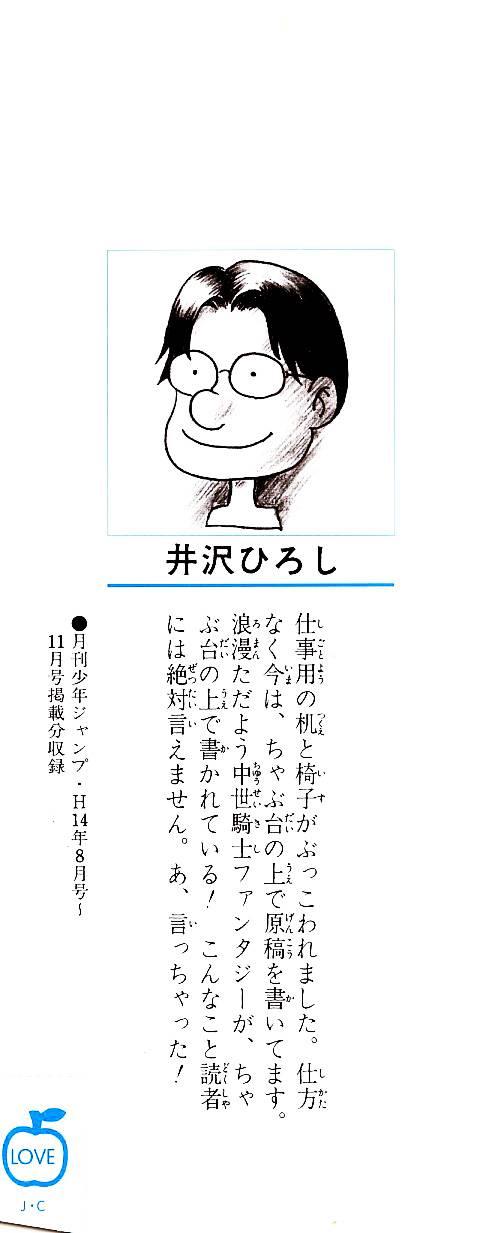 井沢ひろし
仕事用の机と椅子がぶっこわれました。仕方
なく今は、ちゃぶ台の上で原稿を書いてます。
浪漫ただよう中世騎士ファンタジーが、ちゃ
ぶ台の上で書かれている！こんなこと読者
には絶対言えません。あ、言っちゃった！
●月刊少年ジャンプ・H14年8月号～
11月号掲載分収録
LOVE
J・C